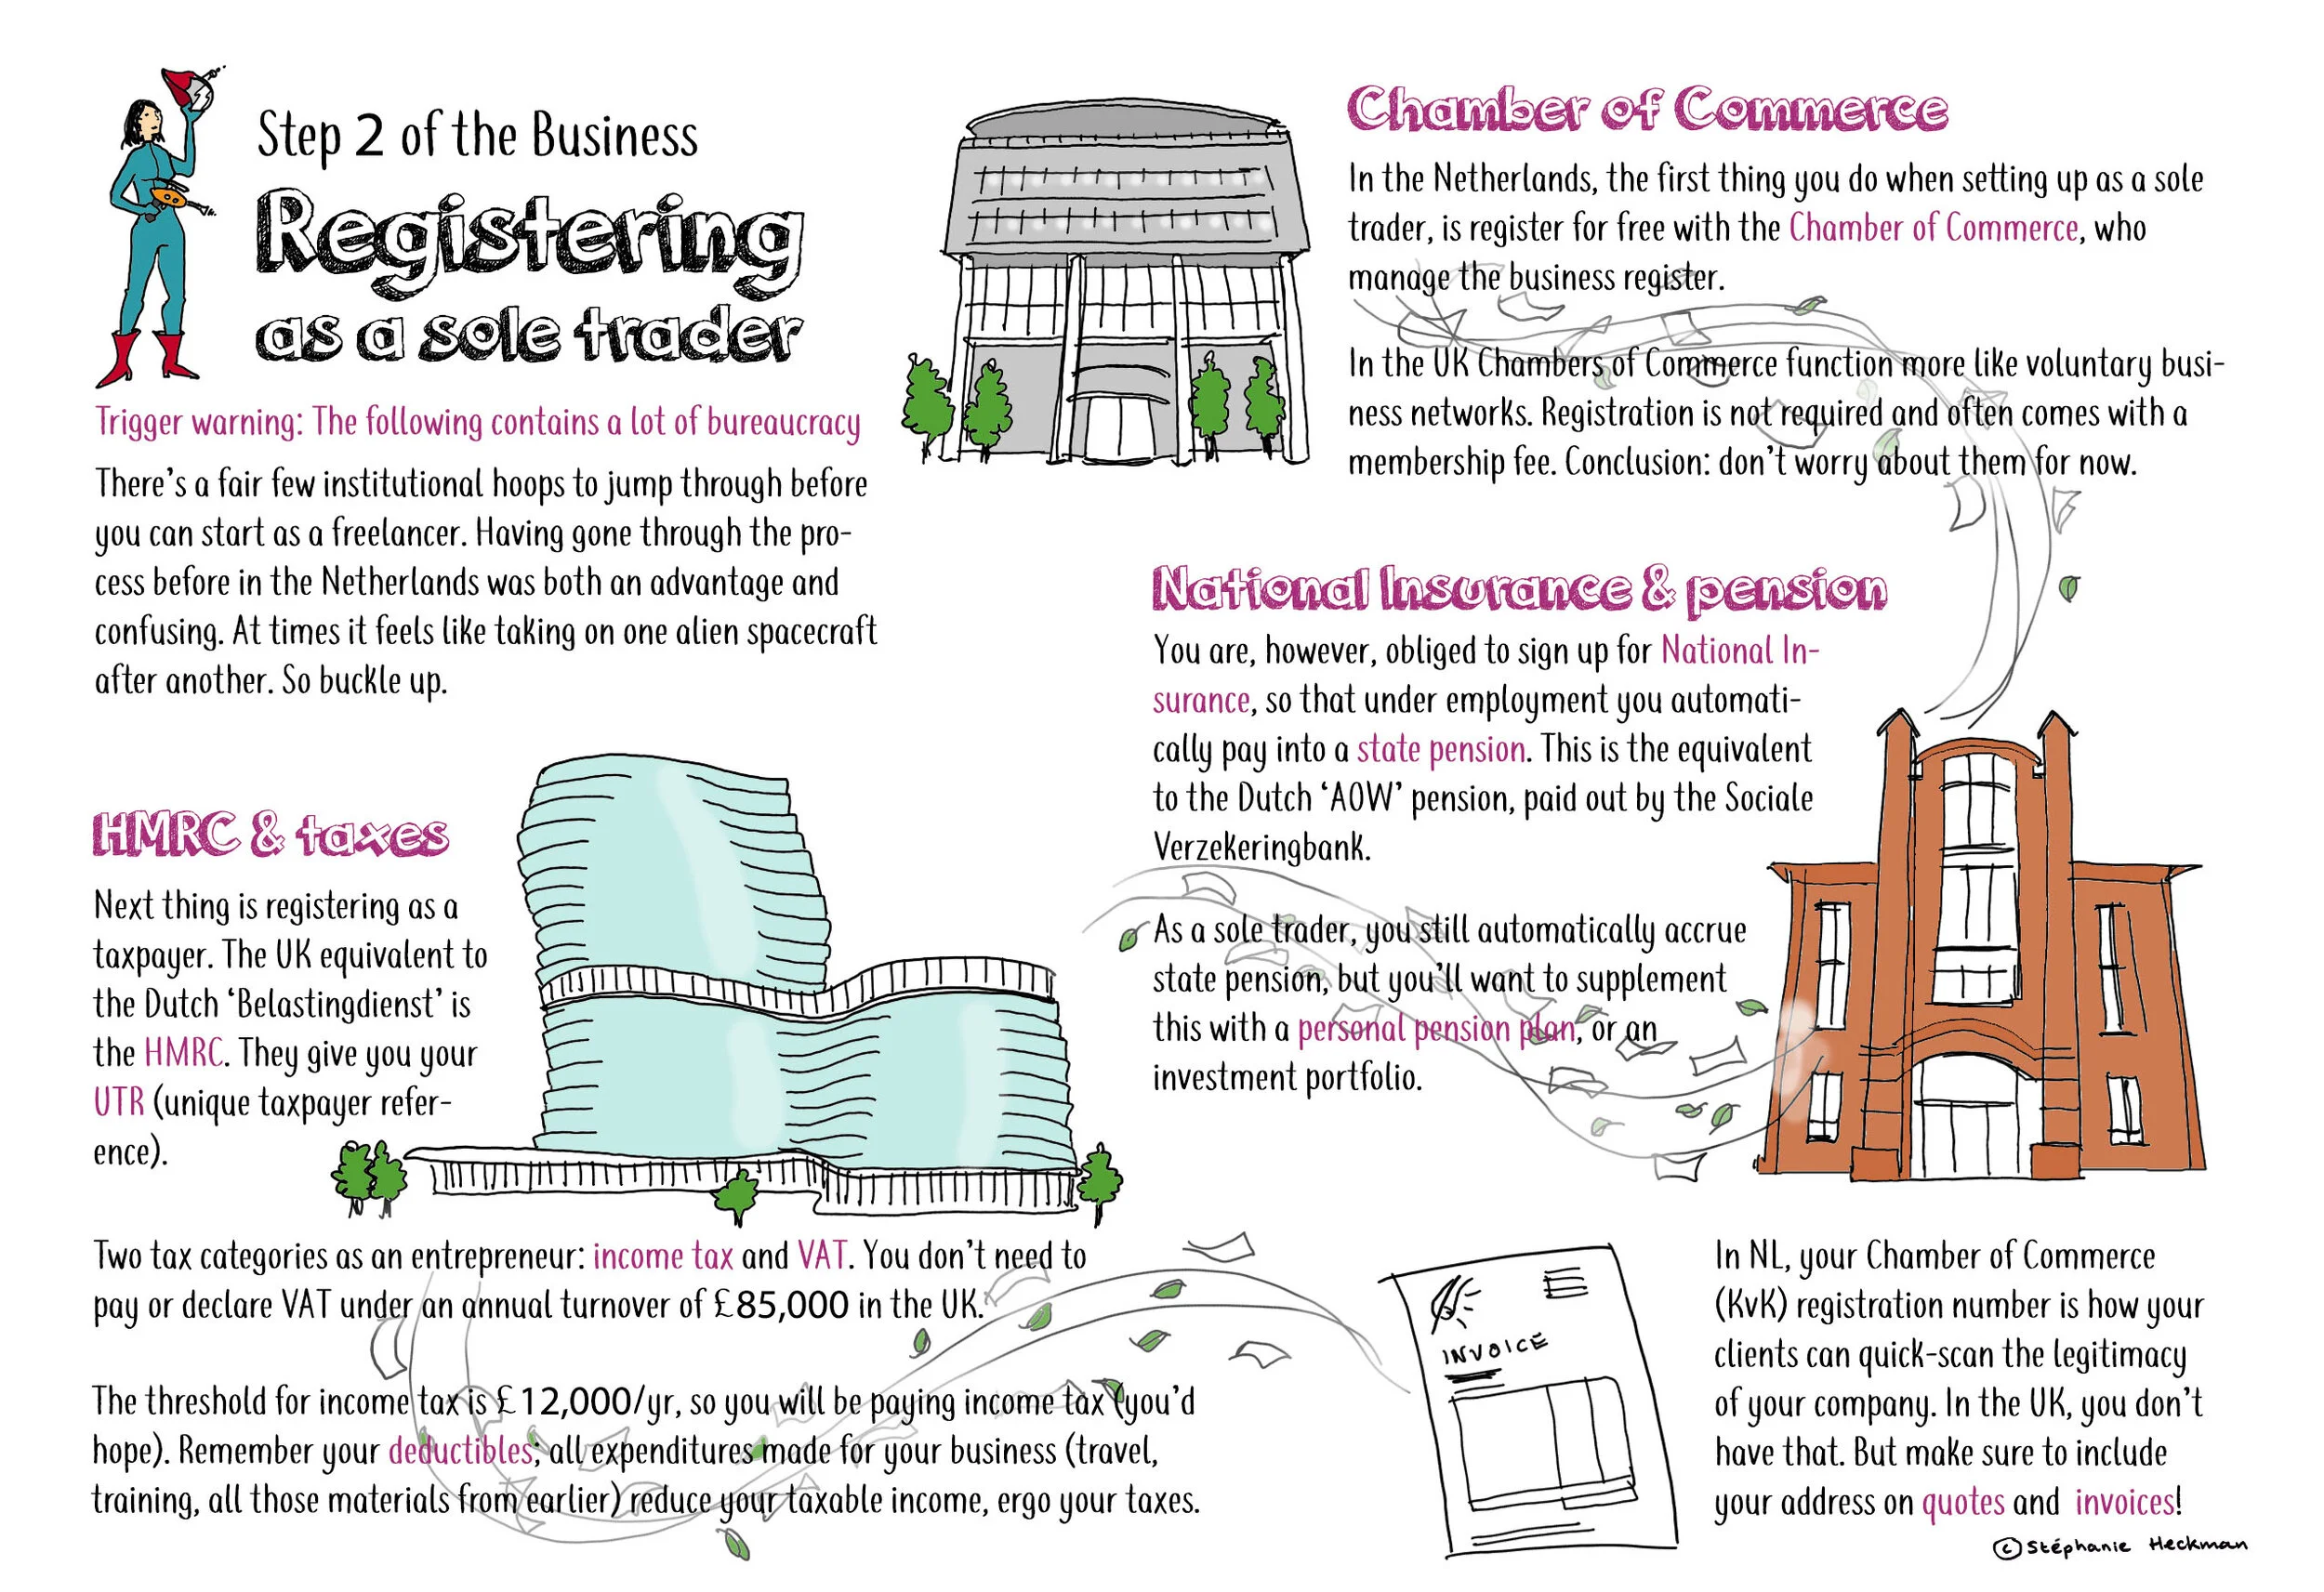 Step 2 of the Business
Registering
as a sole trader
Trigger warning: The following contains a lot of bureaucracy
There's a fair few institutional hoops to jump through before
you can start as a freelancer. Having gone through the pro-
cess before in the Netherlands was both an advantage and
confusing. At times it feels like taking on one alien spacecraft
after another. So buckle up.
Chamber of Commerce
In the Netherlands, the first thing you do when setting up as a sole
trader, is register for free with the Chamber of Commerce, who
manage the business register.
In the UK Chambers of Commerce function more like voluntary busi-
ness networks. Registration is not required and often comes with a
membership fee. Conclusion: don't worry about them for now.
National Insurance & pension
You are, however, obliged to sign up for National In-
surance, so that under employment you automati-
cally pay into a state pension. This is the equivalent
to the Dutch 'AOW' pension, paid out by the Sociale
Verzekeringbank.
As a sole trader, you still automatically accrue
state pension, but you'll want to supplement
this with a personal pension plan, or an
investment portfolio.
HMRC & taxes
Next thing is registering as a
taxpayer. The UK equivalent to
the Dutch 'Belastingdienst' is
the HMRC. They give you your
UTR (unique taxpayer refer-
ence).
Two tax categories as an entrepreneur: income tax and VAT. You don't need to
pay or declare VAT under an annual turnover of £85,000 in the UK.
The threshold for income tax is £12,000/yr, so you will be paying income tax (you'd
hope). Remember your deductibles; all expenditures made for your business (travel,
training, all those materials from earlier) reduce your taxable income, ergo your taxes.
INVOICE
In NL, your Chamber of Commerce
(KvK) registration number is how your
clients can quick-scan the legitimacy
of your company. In the UK, you don't
have that. But make sure to include
your address on quotes and invoices!
© Stéphanie Heckman